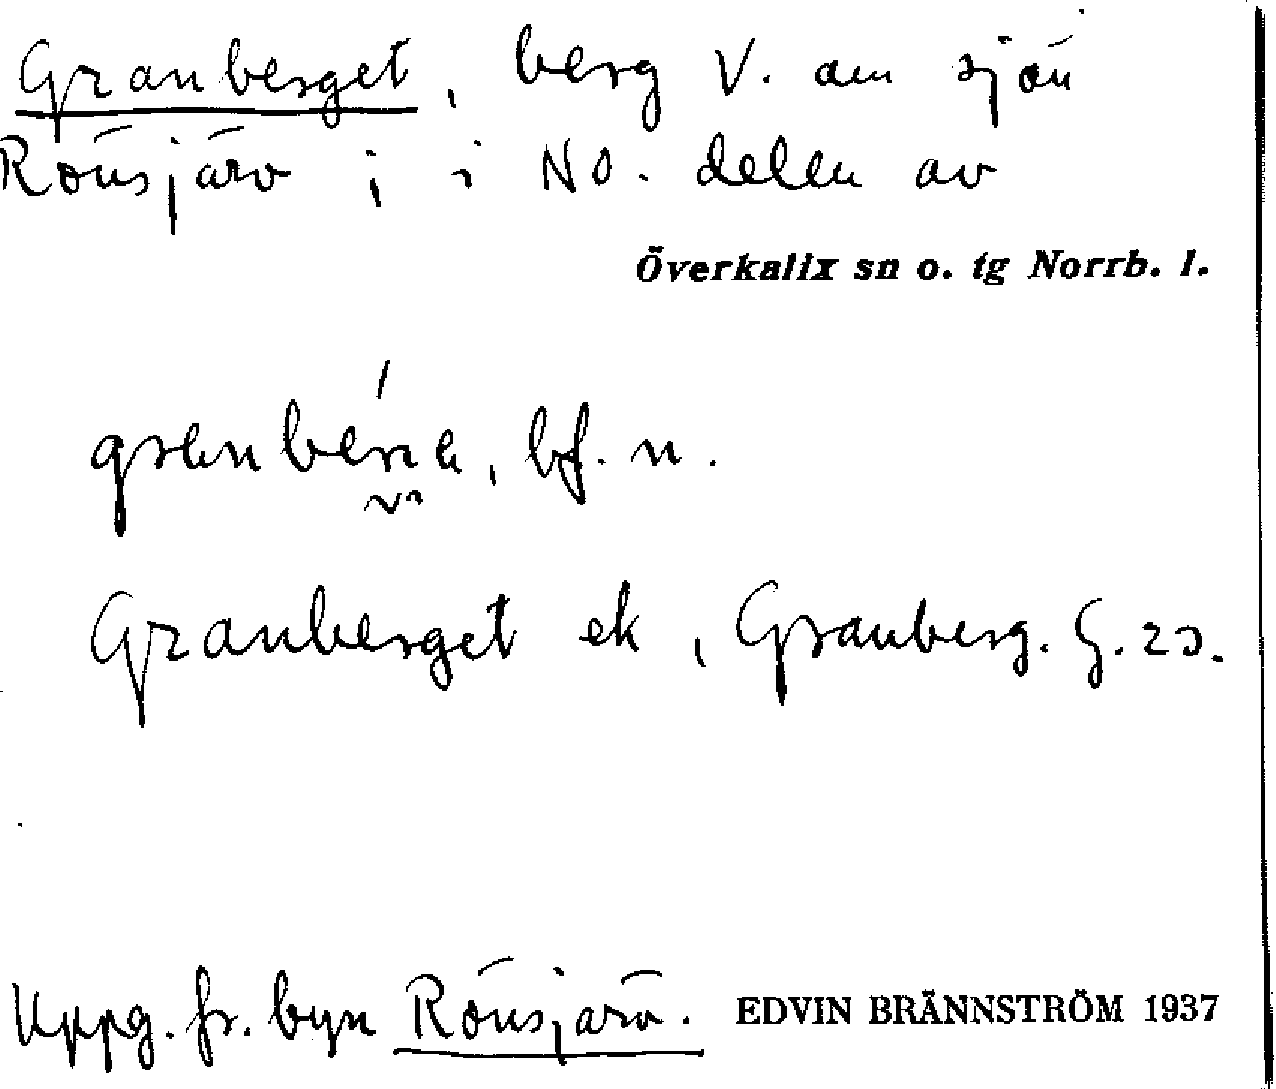 Granberget, berg V. om sjön
Rönsjärv i i NO. delen av
Överkalix sn o. tg Norrb. l.
bf. n.
Granberget ek, Granberg. G. 20.
Uppg. fr. byn Rönsjärv. EDVIN BRÄNNSTRÖM 1937